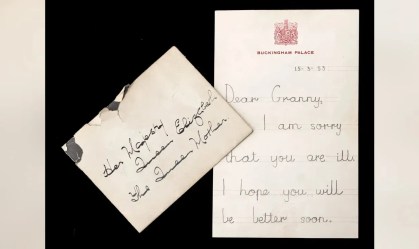 Her Majesty
Queen Elizabeth
The Queen Mother
BUCKINGHAM PALACE
Dear Granny,
I am sorry
that you are ill
I hope you will
be better soon.